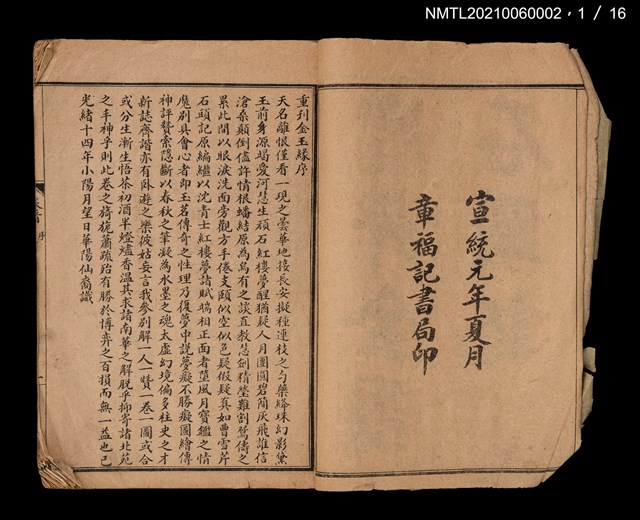 NMTL20210060002，1 / 16
宣統元年夏月
章福記書局印
重刋金玉緣序
天名離恨僅看一現之曇華地接長安擬種連枝之勺藥絳珠幻影黛
玉前身源竭愛河慧生頑石紅樓夢醒猶疑人月團圓碧簡灰飛誰信
滄桑顛倒儘許情根蟠結原為烏有之談直教慧劍精瑩難割鴛儔之
累此間以眼淚洗面旁觀方手倦支頤似空似色疑假疑真如曹雪芹
石頭記原編繼以沈青士紅樓夢諸賦端相正面者墮風月寶鑑之情
魔別具會心者即玉茗傳奇之性理乃復夢中說夢癡不勝癡圖繪傳
神評贊索隱斷以春秋之筆凝為水墨之魂太虛幻境偏多柱史之才
新誌齊諧亦有臥遊之樂彼姑妄言我參別解一人一贊一卷一圖或合
或分生漸生悟茶初酒半燈爐香溫其求諸南華之解脫乎抑寄諸北苑
之手神乎則此卷之旖旎蕭疏殆有勝於博弈之百損而無一益也已
光緒十四年小陽月望日華陽仙裔識
序
一